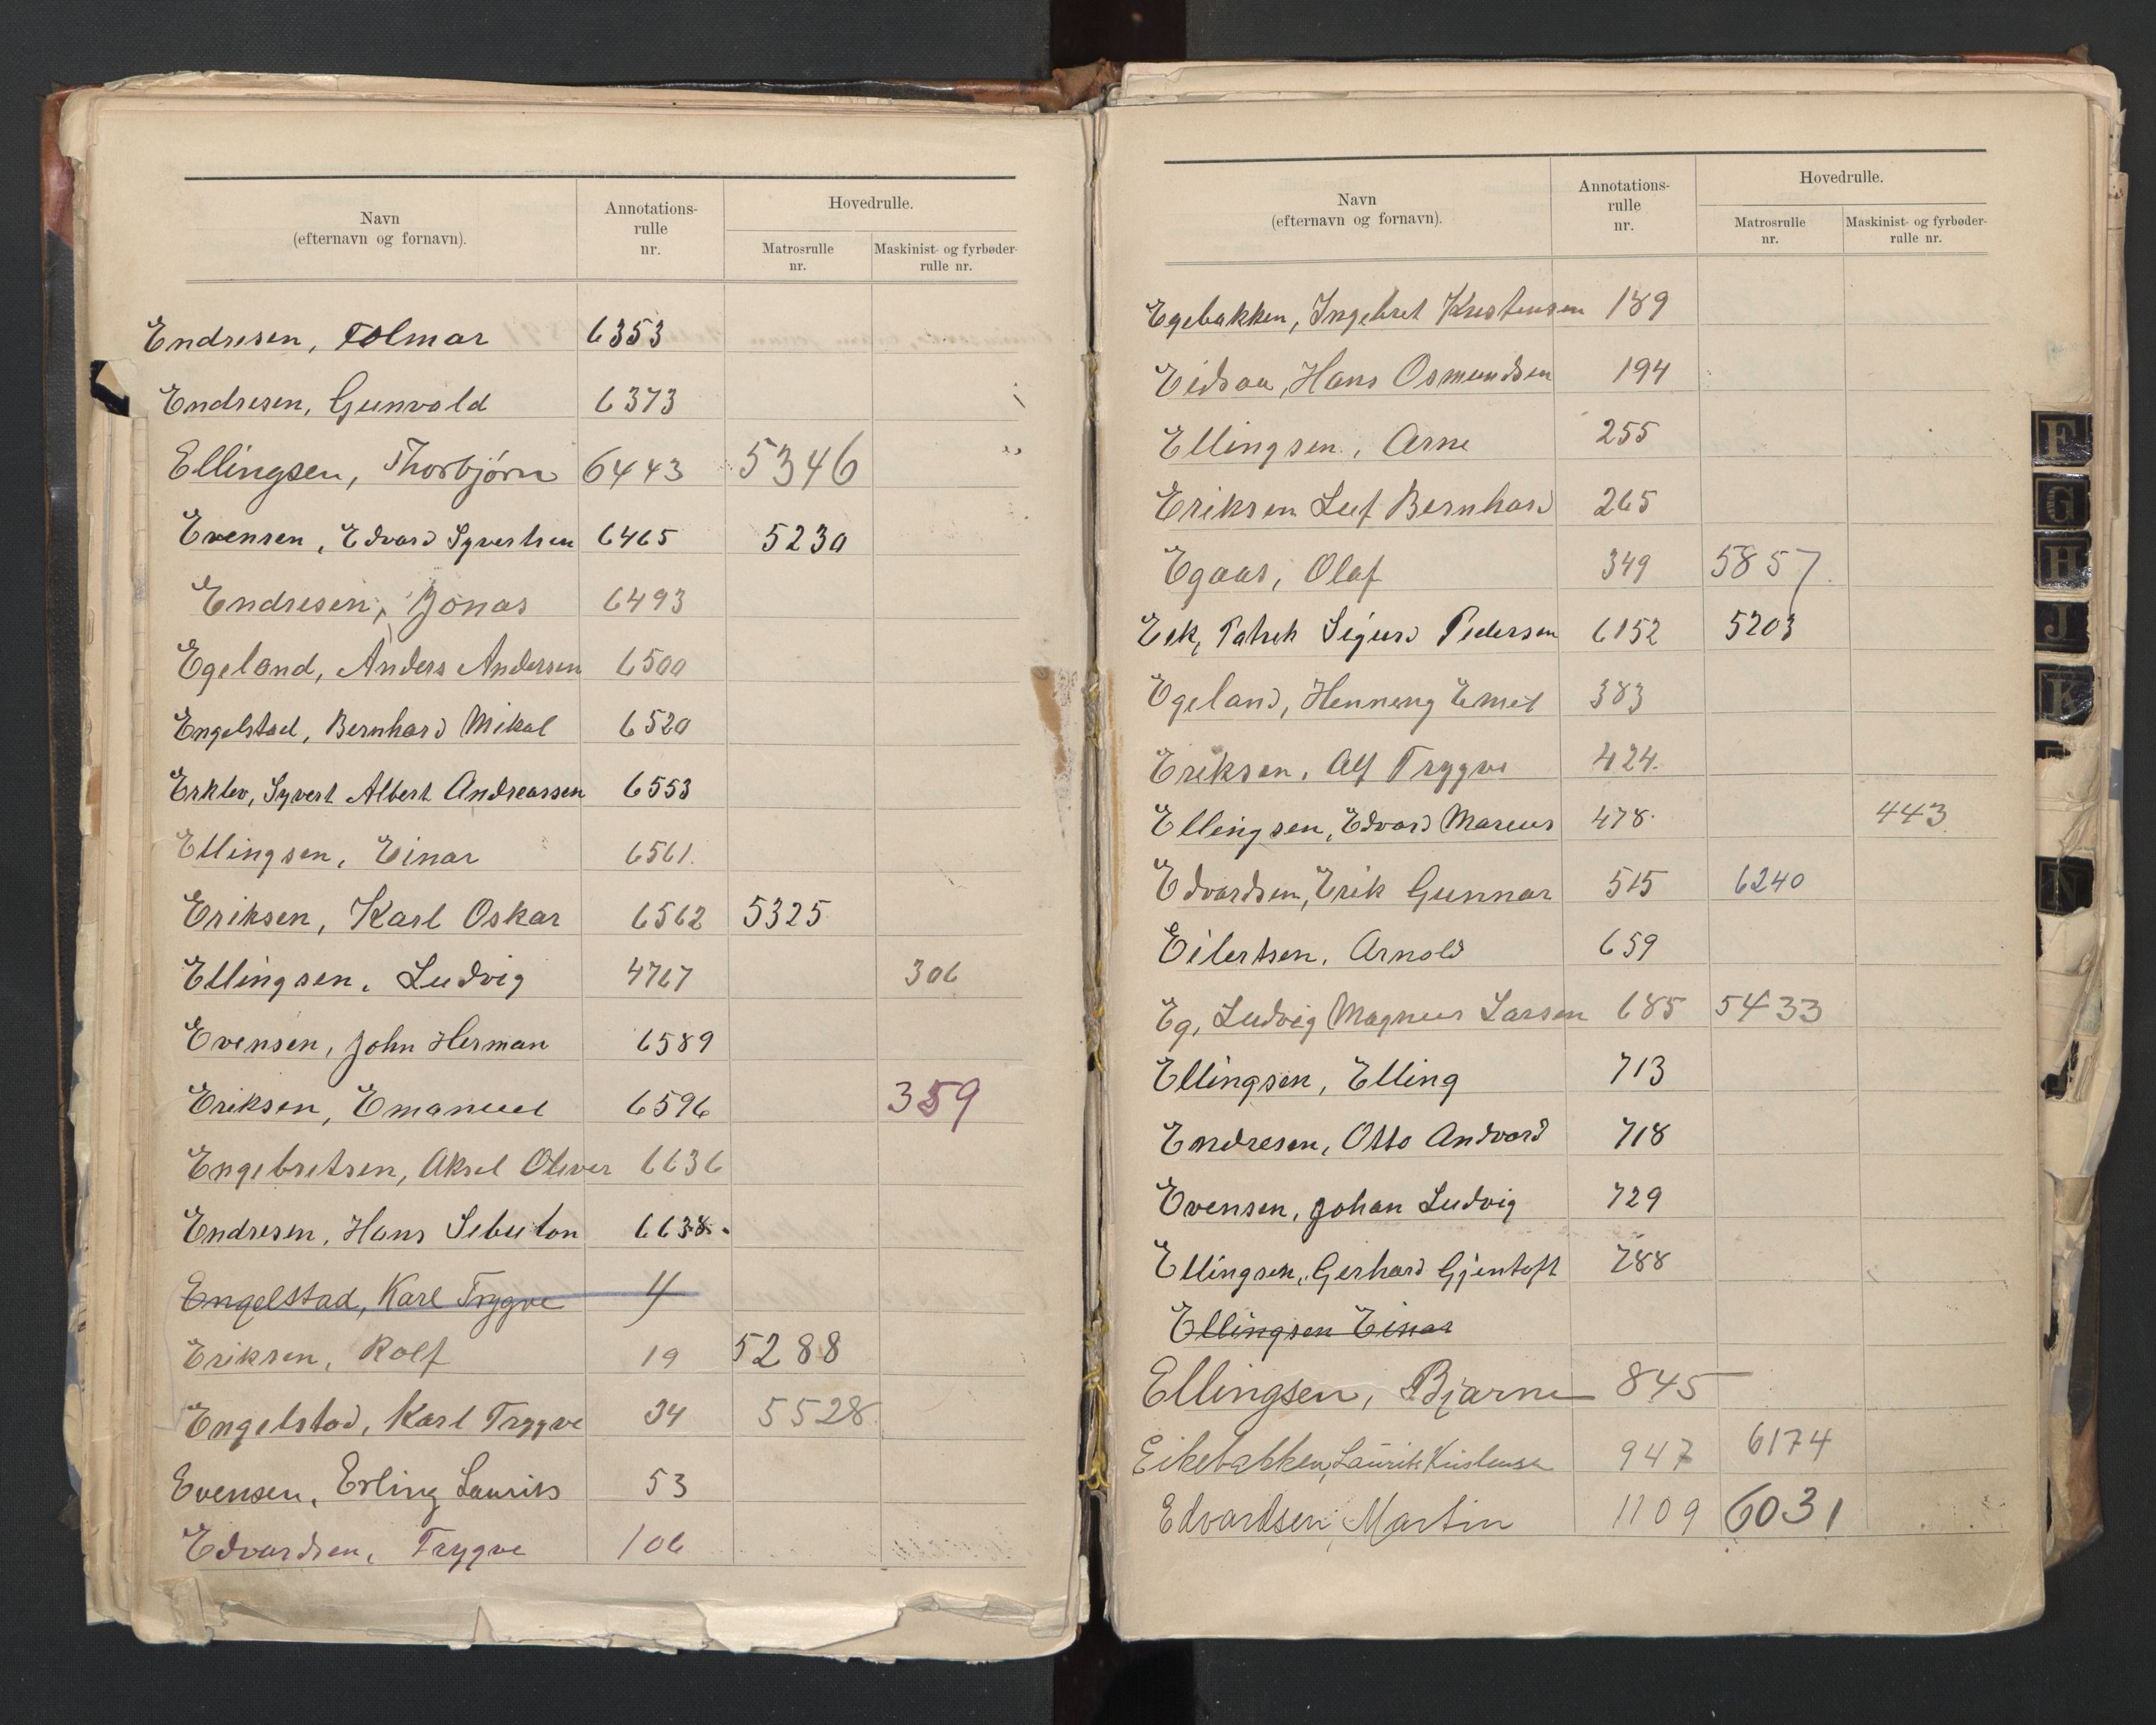 Navn
(efternavn og fornavn).
Annotations-
rulle
nr.
Hovedrulle.
Matrosrulle
nr.
Maskinist- og fyrbøder-
rulle nr.
Endresen, Tolmar 6353
Endresen, Gunvald 6373
Ellingsen, Thorbjørn 6443 5346
Evensen, Edvard Syvertsen 6465 5230
Endresen, Jonas 6493
Egeland, Anders Andersen 6500
Engelstad, Bernhard Mikal 6520
Erklev, Syvert Albert Andreassen 6553
Ellingsen, Einar 6561.
Eriksen, Karl Oskar 6562 5325
Ellingsen, Ludvig 4767 306
Evensen, John Herman 6589
Eriksen, Emanuel 6596 359
Engebretsen, Aksel Oliver 6636
Endresen, Hans Sebulon 6638.
Engelstad, Karl Trygve 4
Eriksen, Rolf 19 5288
Engelstad, Karl Trygve 34 5528
Evensen, Erling Laurits 53
Edvardsen, Trygve 106
Navn
(efternavn og fornavn).
Annotations-
rulle
nr.
Hovedrulle.
Matrosrulle
nr.
Maskinist- og fyrbøder-
rulle nr.
Egebakken, Ingebret Kristensen 189
Eidsaa, Hans Osmundsen 194
Ellingsen, Arne 255
Eriksen Leif Bernhard 265
Egaas, Olaf 349 5857
Eek, Patrik Sigurd Pedersen 6152 5203
Egeland, Henneng Emil 383
Eriksen, Alf Trygve 424.
Ellingsen, Edvard Marcus 478. 443
Edvardsen, Erik Gunnar 515 6240
Eilertsen, Arnold 659
Eg, Ludvig Magnus Larsen 685 5433
Ellingsen, Elling 713
Endresen, Otto Andvord 718
Evensen, Johan Ludvig 729
Ellingsen, Gerhard Gjentoft 788
Ellingsen Einar
Ellingsen, Bjarne 845
Eikebakken, Laurits Kristensen 947 6174
Edvardsen, Martin 1109 6031
F
G
H
J
K
N